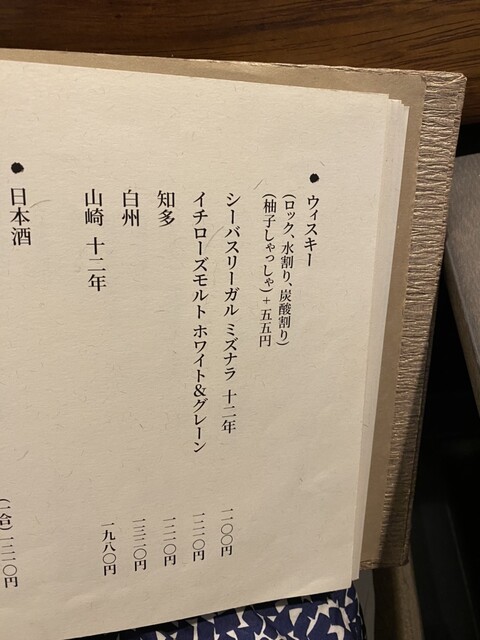 ● ウィスキー
(ロック、水割り、炭酸割り)
(柚子しゃっしゃ)+五五円
シーバスリーガル ミズナラ 十二年 一一〇〇円
イチローズモルト ホワイト&グレーン 一二一〇円
知多 一二一〇円
白州 一三二〇円
山崎 十二年 一九八〇円
● 日本酒 (一合)一二一〇円